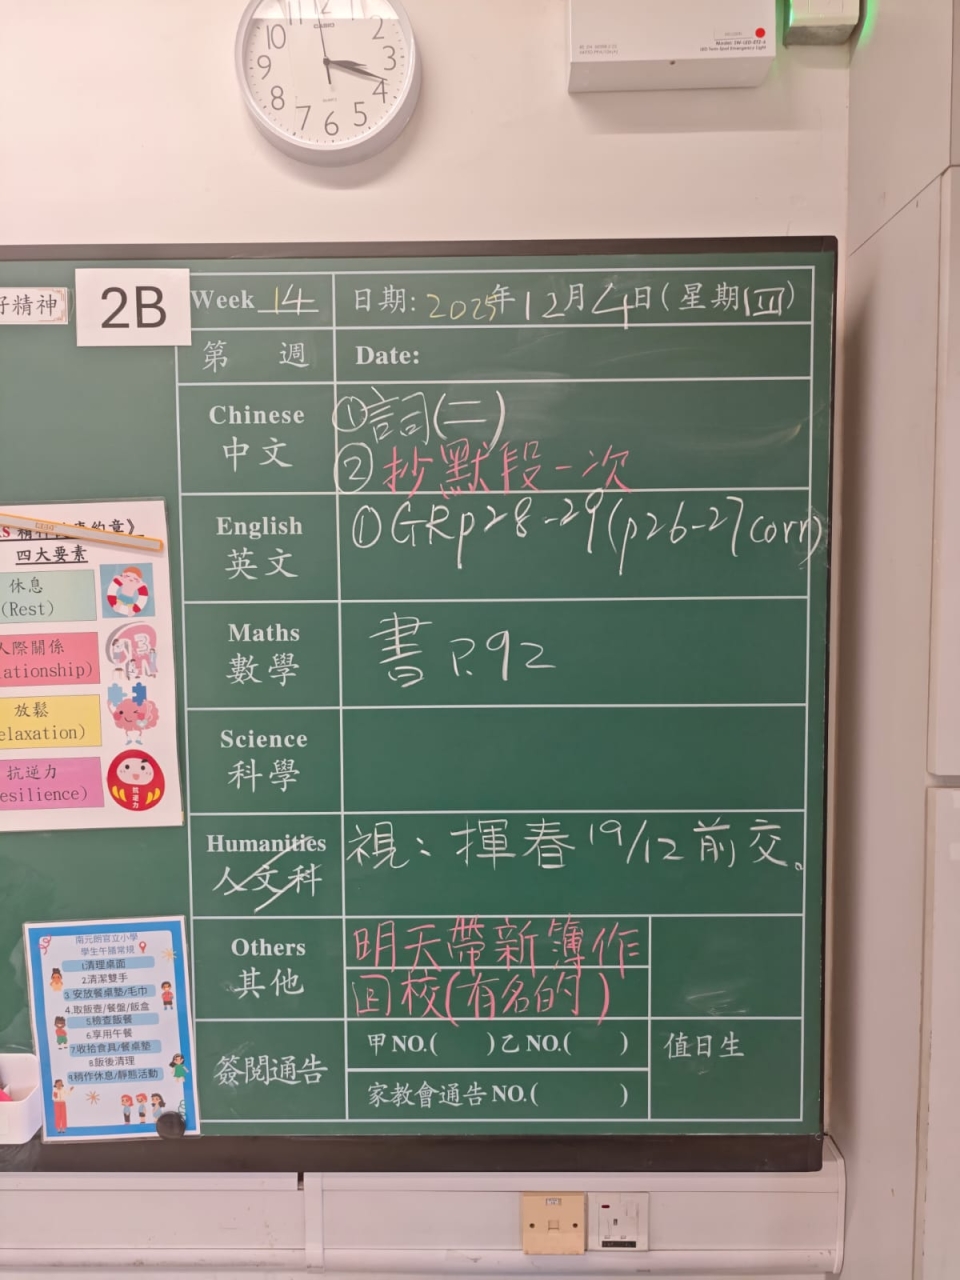 CASIO
QUARTZ
好精神
2B
Week 14
日期: 2025年12月4日(星期四)
第 週
Date:
Chinese
中文
①詞(二)
②抄默段一次
English
英文
①GRp28-29(p26-27corr)
Maths
數學
書 P.92
Science
科學
Humanities
人文科
視: 揮春 19/12前交。
Others
其他
明天帶新簿作
回校(有名的)
簽閱通告
甲NO.( )乙NO.( )
家教會通告NO.( )
值日生
四大要素
休息
(Rest)
人際關係
lationship)
放鬆
elaxation)
抗逆力
esilience)
抗逆力
南元朗官立小學
學生午膳常規
1.清理桌面
2.清潔雙手
3.安放餐桌墊/毛巾
4.取飯壺/餐盤/飯盒
5.檢查飯餐
6.享用午餐
7.收拾食具/餐桌墊
8.飯後清理
9.稍作休息/靜態活動